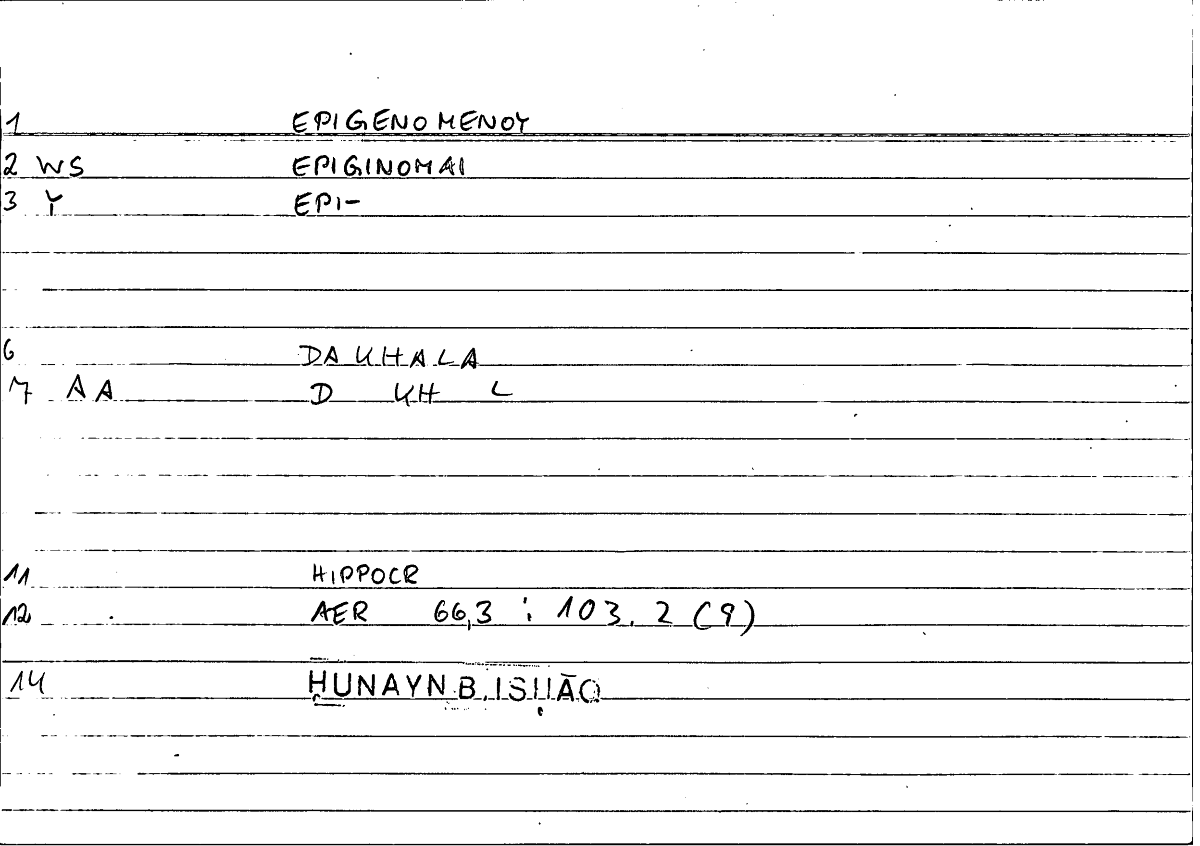 1 EPIGENOMENOY
2 WS EPIGINOMAI
3 Y EPI-
6 DAKHALA
7 AA D KH L
11 HIPPOCR
12 AER 66,3 : 103. 2 (9)
14 ḤUNAYN B. ISḤĀQ